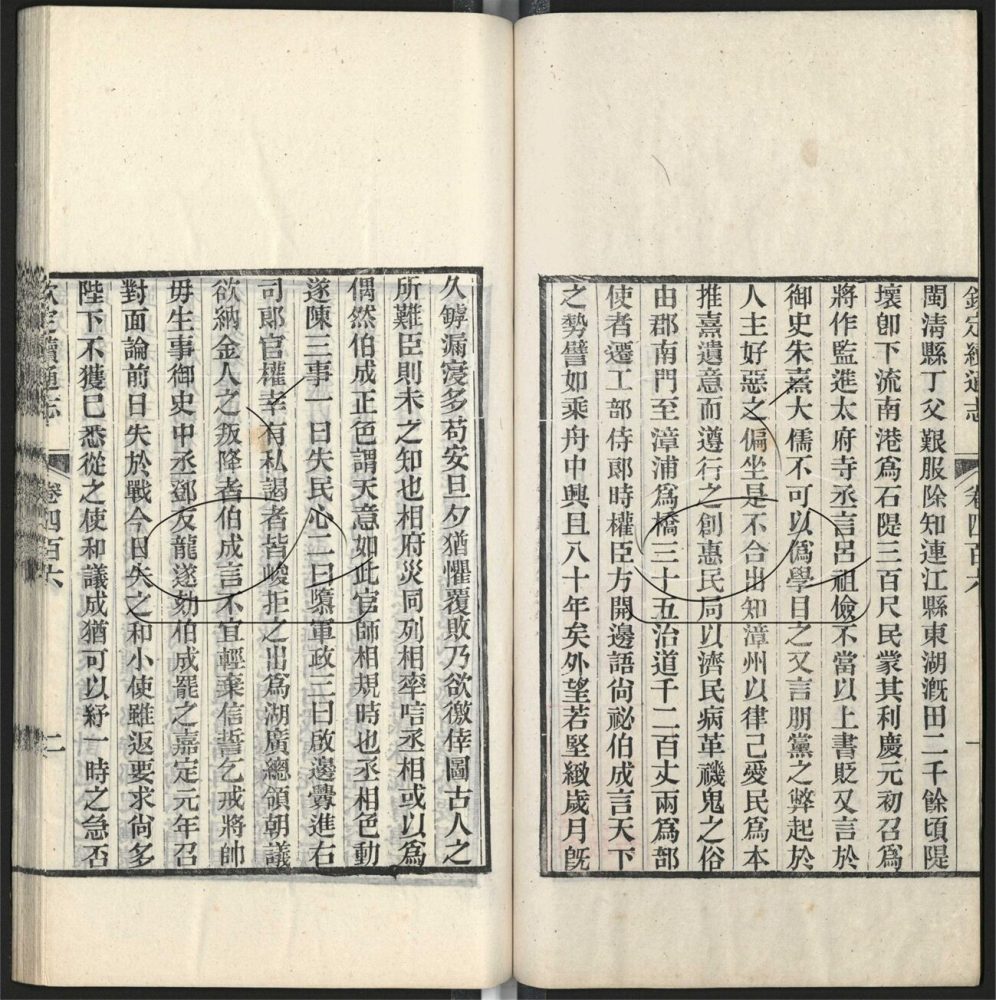 欽定續通志 卷四百六 一
閩清縣丁父艱服除知連江縣東湖漑田二千餘頃隄
壞卽下流南港爲石隄三百尺民蒙其利慶元初召爲
將作監進太府寺丞言呂祖儉不當以上書貶又言於
御史朱熹大儒不可以僞學目之又言朋黨之弊起於
人主好惡之偏坐是不合出知漳州以律己愛民爲本
推熹遺意而遵行之創惠民局以濟民病革禨鬼之俗
由郡南門至漳浦爲橋三十五治道千二百丈兩爲部
使者遷工部侍郎時權臣方開邊語尙祕伯成言天下
之勢譬如乘舟中興且八十年矣外望若堅緻歲月旣
久罅漏寖多苟安旦夕猶懼覆敗乃欲徼倖圖古人之
所難臣則未之知也相府災同列相率唁丞相或以爲
偶然伯成正色謂天意如此官師相規時也丞相色動
遂陳三事一曰失民心二曰隳軍政三曰啟邊釁進右
司郎官權幸有私謁者皆峻拒之出爲湖廣總領朝議
欲納金人之叛降者伯成言不宜輕棄信誓乞戒將帥
毋生事御史中丞鄧友龍遂劾伯成罷之嘉定元年召
對面論前日失於戰今日失之和小使雖返要求尙多
陛下不獲已悉從之使和議成猶可以紓一時之急否
欽定續通志 卷四百六 二